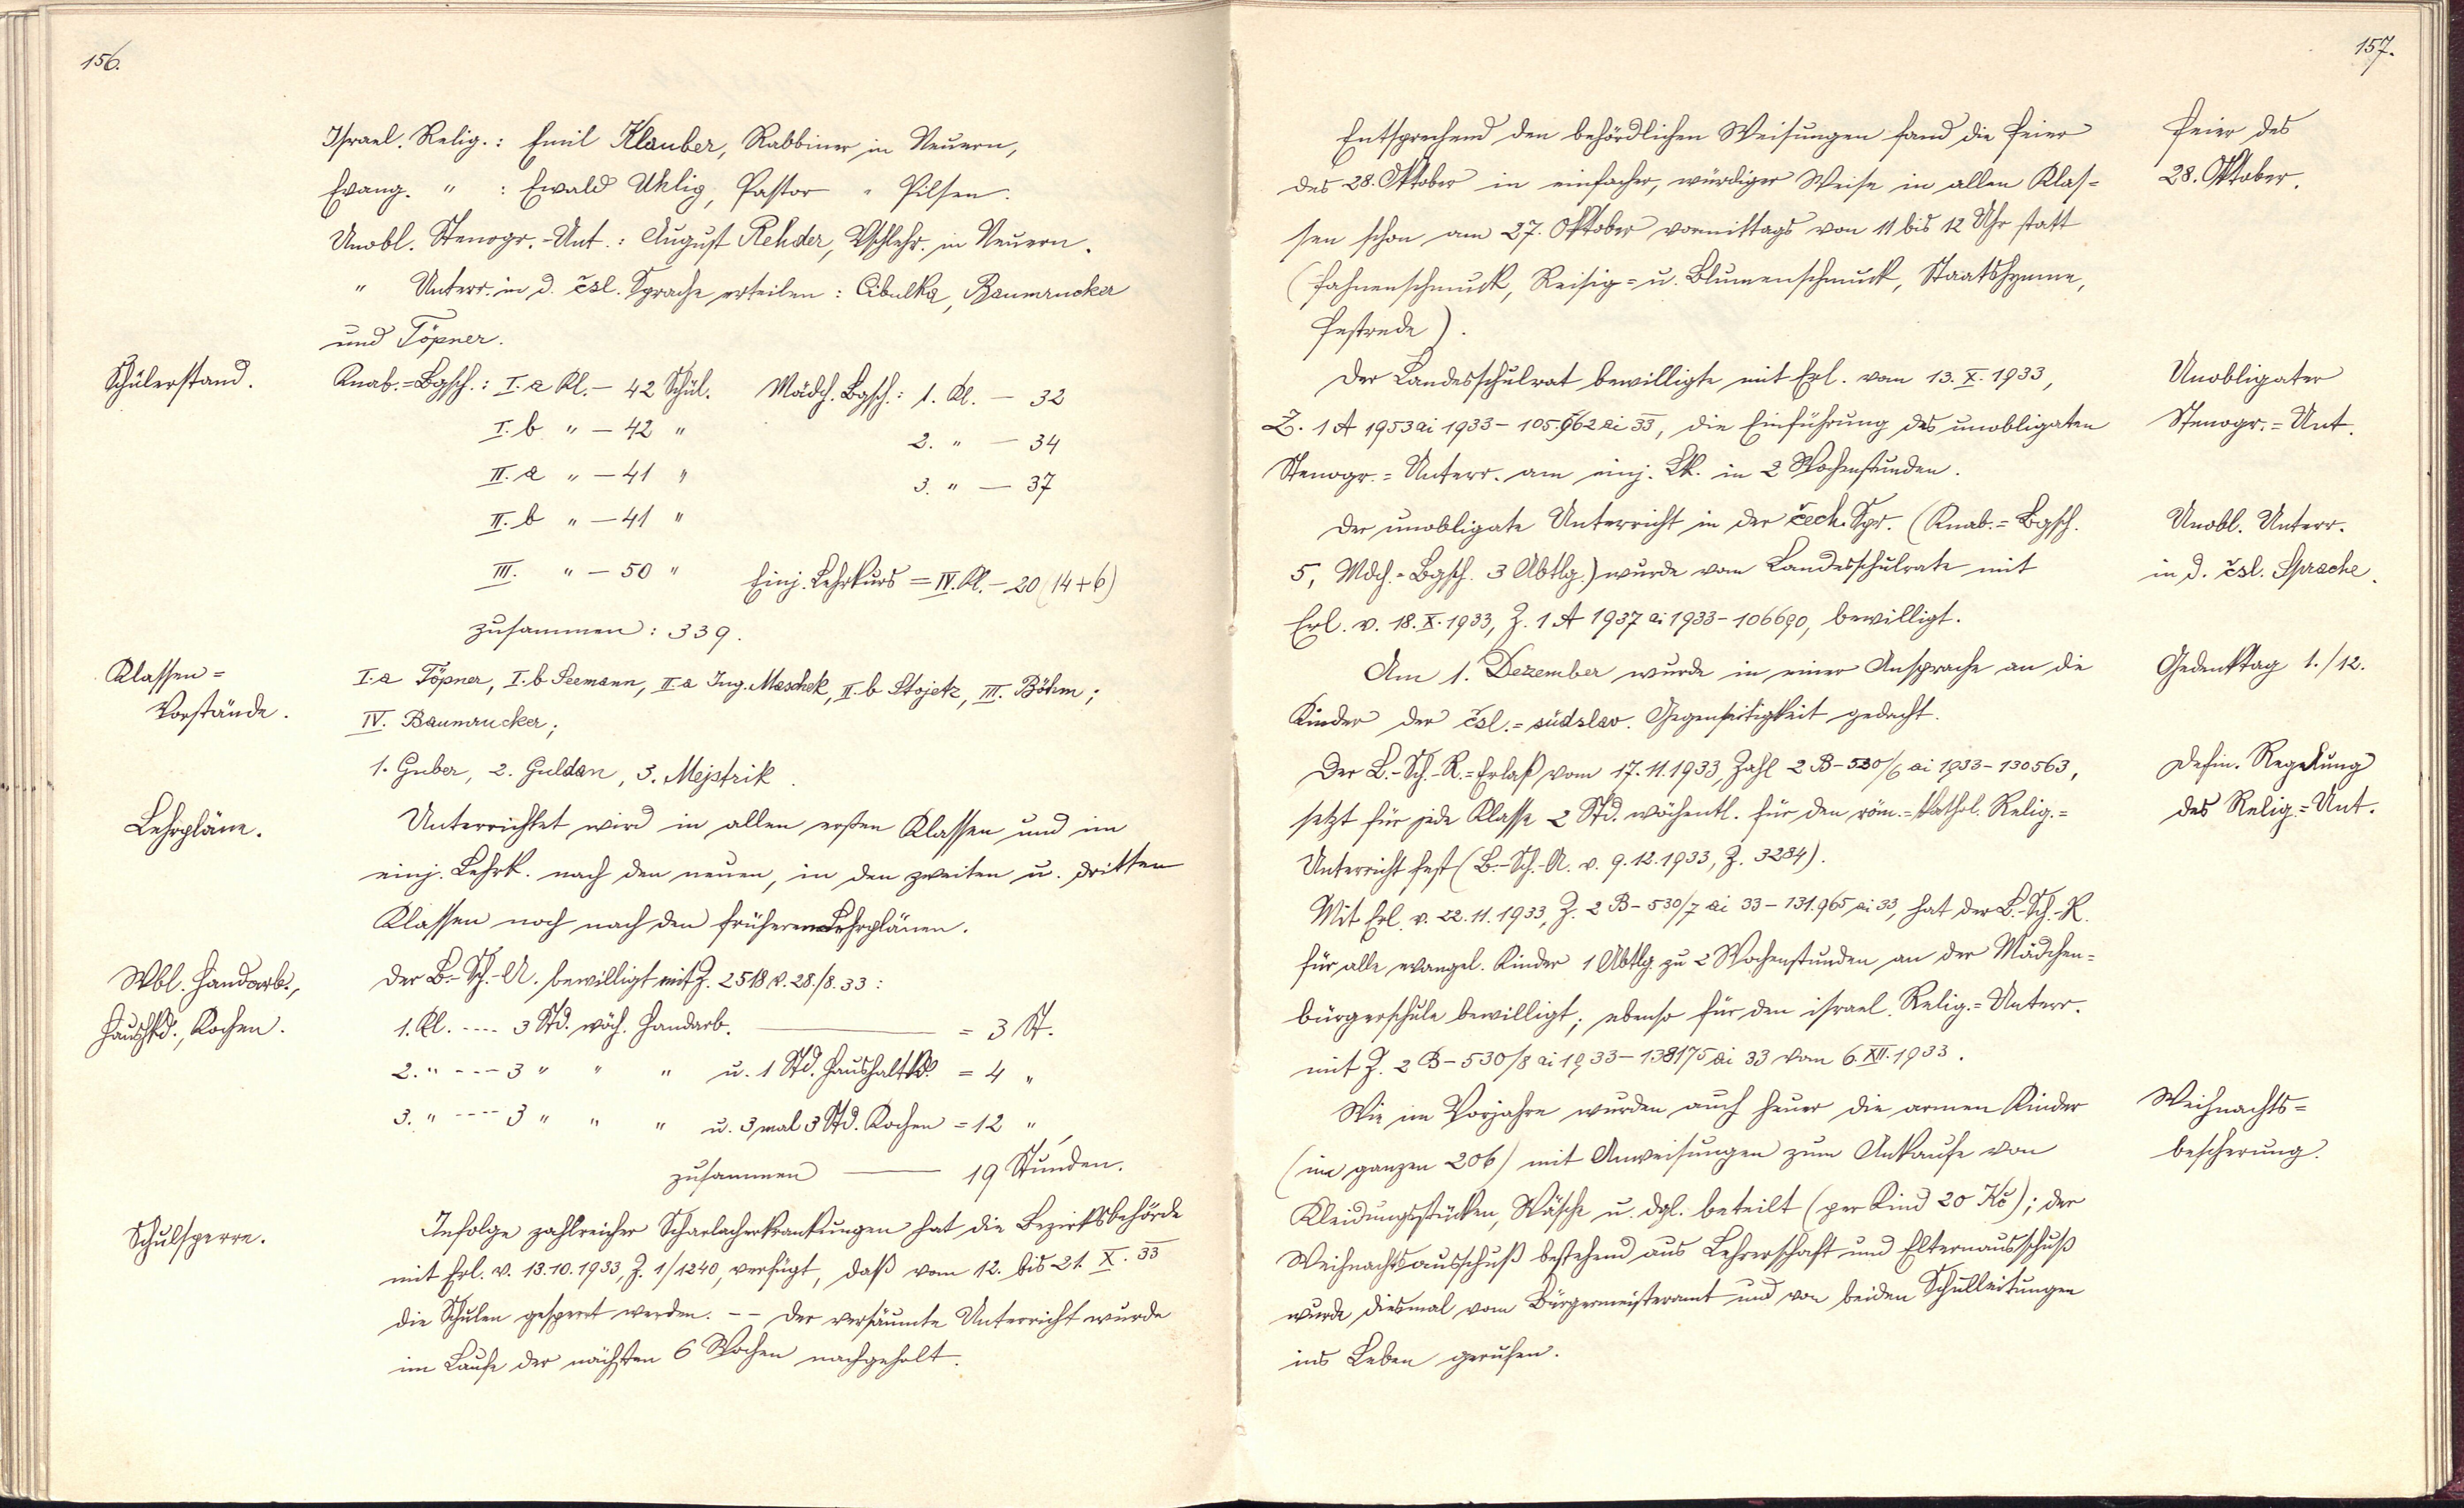 156.
Israel. Relig.: Emil Klauber, Rabbiner in Neuern,
Evang. " : Ewald Uhlig, Pastor " Pilsen.
Unobl. Stenogr.-Unt.: August Rehder, Bschlehr. in Neuern.
" Unterr. in d. čsl. Sprache erteilen: Cibulka, Baumrucker
und Töpner.
Schülerstand.
Knab.=Bgsch.: I. a Kl. – 42 Schül. Mädch. Bgsch.: 1. Kl. – 32
I. b " – 42 " 2. " – 34
II. a " – 41 " 3. " – 37
II. b " – 41 "
III. " – 50 " Einj. Lehrkurs = IV. Kl. – 20 (14+6)
zusammen: 339.
Klassen=
Vorstände.
I. a Töpner, I. b Seemann, II. a Ing. Maschek, II. b Stojetz, III. Böhm;
IV. Baumrucker;
1. Guber, 2. Guldan, 3. Mejstrik.
Lehrpläne.
Unterrichtet wird in allen ersten Klassen und im
einj. Lehrk. nach den neuen, in den zweiten u. dritten
Klassen noch nach den früheren Lehrplänen.
Wbl. Handarb.,
Haushkd., Kochen.
Der B.-Sch.-A. bewilligt mit Z. 2518 v. 28./8. 33:
1. Kl. ---- 3 Std. wöch. Handarb. = 3 St.
2. " ---- 3 " " " u. 1 Std. Haushaltkd. = 4 "
3. " ---- 3 " " " u. 3 mal 3 Std. Kochen = 12 "
zusammen 19 Stunden.
Schulsperre.
Infolge zahlreicher Scharlacherkrankungen hat die Bezirksbehörde
mit Erl. v. 13.10.1933, Z. 1/1240, verfügt, daß vom 12. bis 21. X. 33
die Schulen gesperrt werden. -- Der versäumte Unterricht wurde
im Laufe der nächsten 6 Wochen nachgeholt.
157.
Entsprechend den behördlichen Weisungen fand die Feier
des 28. Oktober in einfacher, würdiger Weise in allen Klas=
sen schon am 27. Oktober vormittags von 11 bis 12 Uhr statt
(Fahnenschmuck, Reisig= u. Blumenschmuck, Staatshymne,
Festrede).
Feier des
28. Oktober.
Der Landesschulrat bewilligte mit Erl. vom 13. X. 1933,
Z. 1 A 1953 ai 1933 – 105.962 ai 33, die Einführung des unobligaten
Stenogr.=Unterr. am einj. Lk. in 2 Wochenstunden.
Unobligater
Stenogr.=Unt.
Der unobligate Unterricht in der čech. Spr. (Knab.=Bgsch.
5, Mdch.=Bgsch. 3 Abtlg.) wurde vom Landesschulrate mit
Erl. v. 18. X. 1933, Z. 1 A 1937 ai 1933 – 106690, bewilligt.
Unobl. Unterr.
in d. čsl. Sprache.
Am 1. Dezember wurde in einer Ansprache an die
Kinder der čsl.=südslav. Gegenseitigkeit gedacht.
Gedenktag 1./12.
Der L.-Sch.-R.=Erlaß vom 17.11.1933, Zahl 2 B–530/6 ai 1933–130563,
setzt für jede Klasse 2 Std. wöchentl. für den röm.=kathol. Relig.=
Unterricht fest (B.-Sch.-A. v. 9.12.1933, Z. 3284).
Defin. Regelung
des Relig.=Unt.
Mit Erl. v. 22.11.1933, Z. 2 B–530/7 ai 33–131.965 ai 33, hat der L.-Sch.-R.
für alle evangel. Kinder 1 Abtlg. zu 2 Wochenstunden an der Mädchen=
bürgerschule bewilligt; ebenso für den israel. Relig.=Unterr.
mit Z. 2 B–530/8 ai 1933–138175 ai 33 vom 6. XII. 1933.
Wie im Vorjahre wurden auch heuer die armen Kinder
(im ganzen 206) mit Anweisungen zum Ankaufe von
Kleidungsstücken, Wäsche u. dgl. beteilt (per Kind 20 Kč); der
Weihnachtsausschuß bestehend aus Lehrerschaft und Elternausschuß
wurde diesmal vom Bürgermeisteramt und von beiden Schulleitungen
ins Leben gerufen.
Weihnachts=
bescherung.